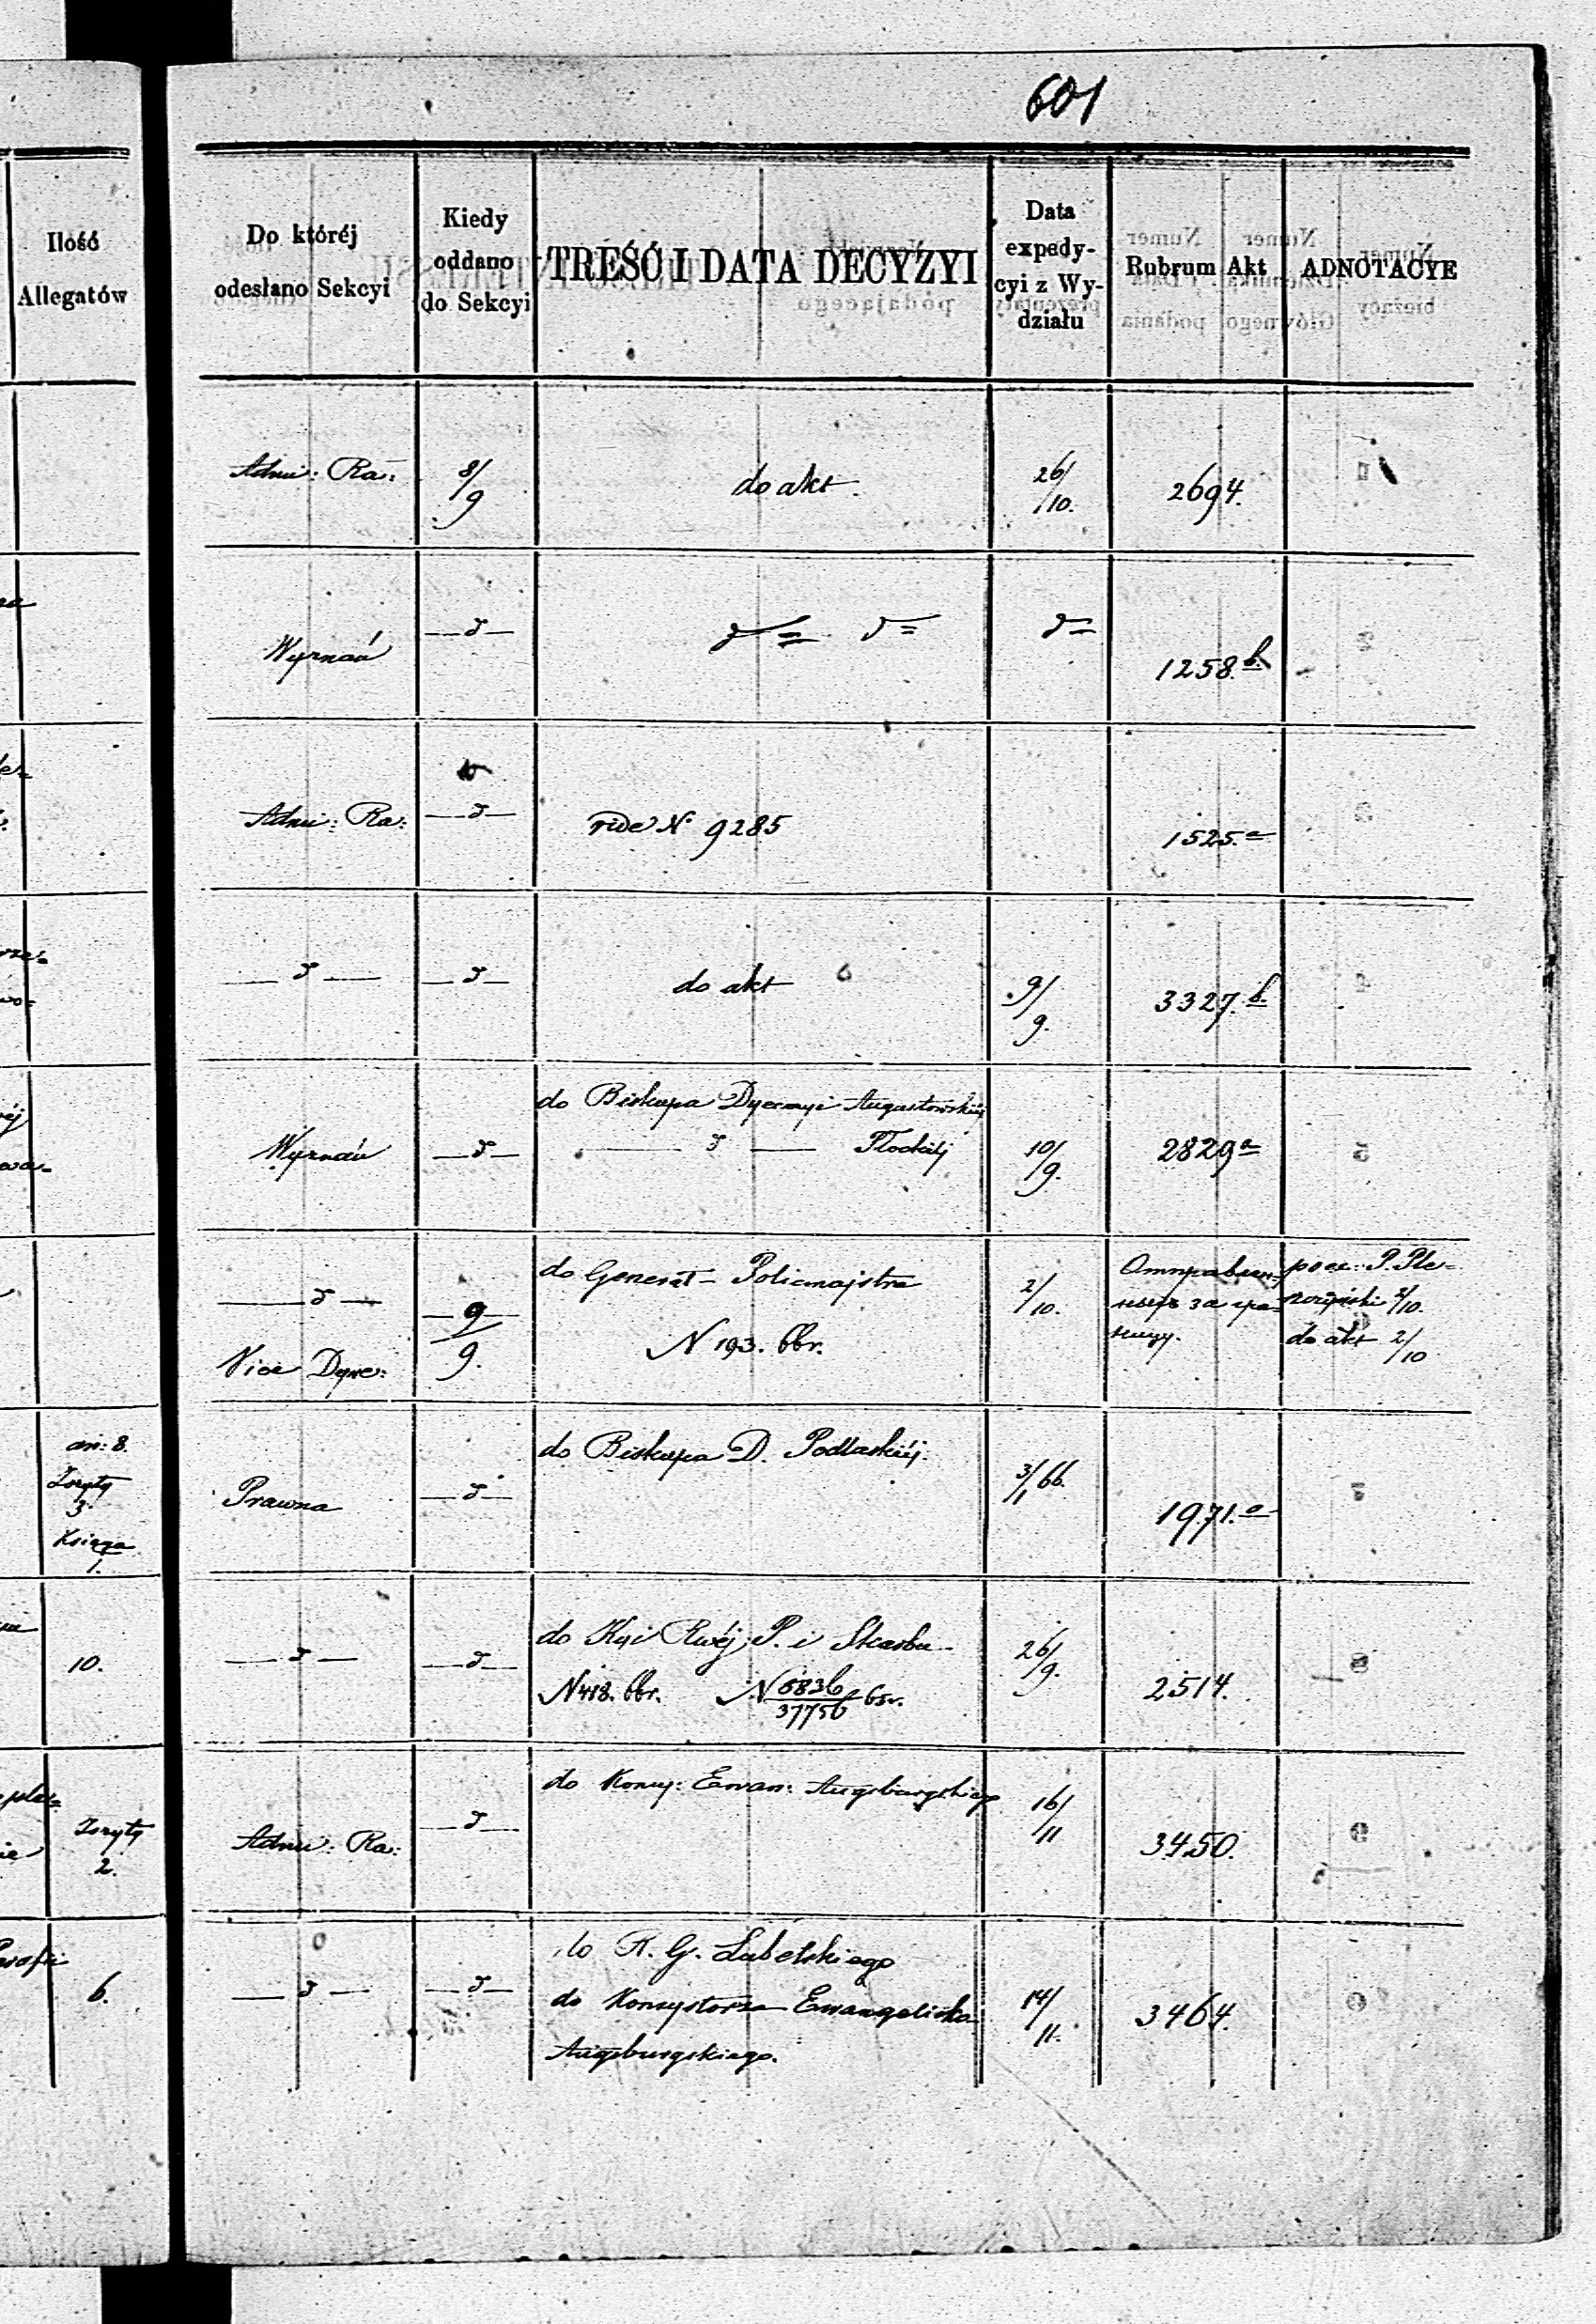 601
Ilość
Allegatów
Do któréj
odesłano Sekcyi
Kiedy
oddano
do Sekcyi
TREŚĆ I DATA DECYZYI
Data
expedy-
cyi z Wy-
działu
Rubrum Akt
ADNOTACYE
Admi: Ra: 8/9 do akt. 26/10. 2694.
Wyznań — d — d = d = d = 1258. b.
Admi: Ra: — d — vide N 9285 1525. a
— d — — d — do akt 9/9. 3327. b.
do Biskupa Dyecezyi Augustowskiéj
Wyznań — d — — d — Płockiéj 10/9. 2829 a
— d — 9/9. do Generał-Policmajstra 2/10.
N 193. bbr.
Vice Dyre:
do akt 2/10
an: 8.
Zeszyty
3.
Księga
1.
Prawna — d — do Biskupa D. Podlaskiéj. 3/1 66. 1971. a
10. — d — — d — do Kyi Rwéj P. i Skarbu 26/9. 2514.
N 418. bbr. N 6836/37756 bbr.
Zeszyty
2.
Admi: Ra: — d — do Konsy: Ewan: Augsburgskiego 16/11 3450.
6. — d — — d — do R. G. Lubelskiego 14/11. 3464.
do Konsystorza Ewangelicko
Augsburgskiego.